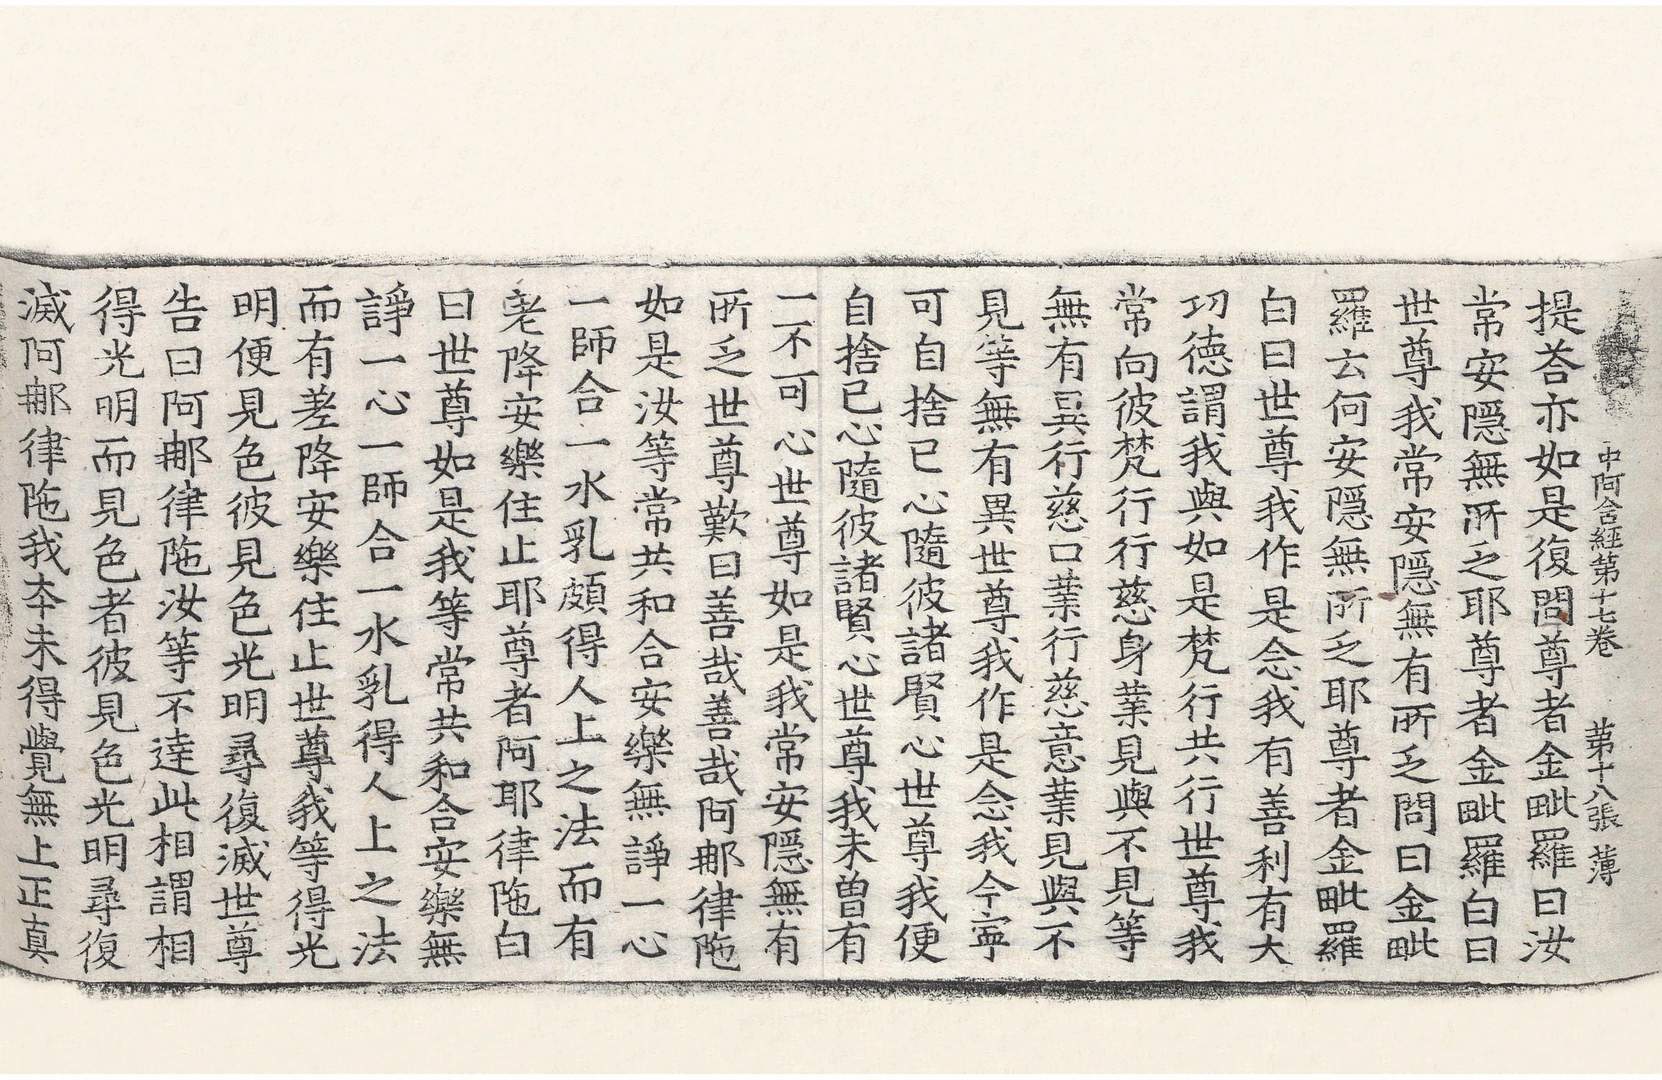 中阿含經第十七卷 第十八張 薄
提荅亦如是復問尊者金毗羅曰汝
常安隱無所乏耶尊者金毗羅白曰
世尊我常安隱無有所乏問曰金毗
羅云何安隱無所乏耶尊者金毗羅
白曰世尊我作是念我有善利有大
功德謂我與如是梵行共行世尊我
常向彼梵行行慈身業見與不見等
無有異行慈口業行慈意業見與不
見等無有異世尊我作是念我今寧
可自捨已心隨彼諸賢心世尊我便
自捨已心隨彼諸賢心世尊我未曾有
一不可心世尊如是我常安隱無有
所乏世尊歎曰善哉善哉阿那律陁
如是汝等常共和合安樂無諍一心
一師合一水乳頗得人上之法而有
差降安樂住止耶尊者阿那律陁白
曰世尊如是我等常共和合安樂無
諍一心一師合一水乳得人上之法
而有差降安樂住止世尊我等得光
明便見色彼見色光明尋復滅世尊
告曰阿那律陁汝等不達此相謂相
得光明而見色者彼見色光明尋復
滅阿那律陁我本未得覺無上正真